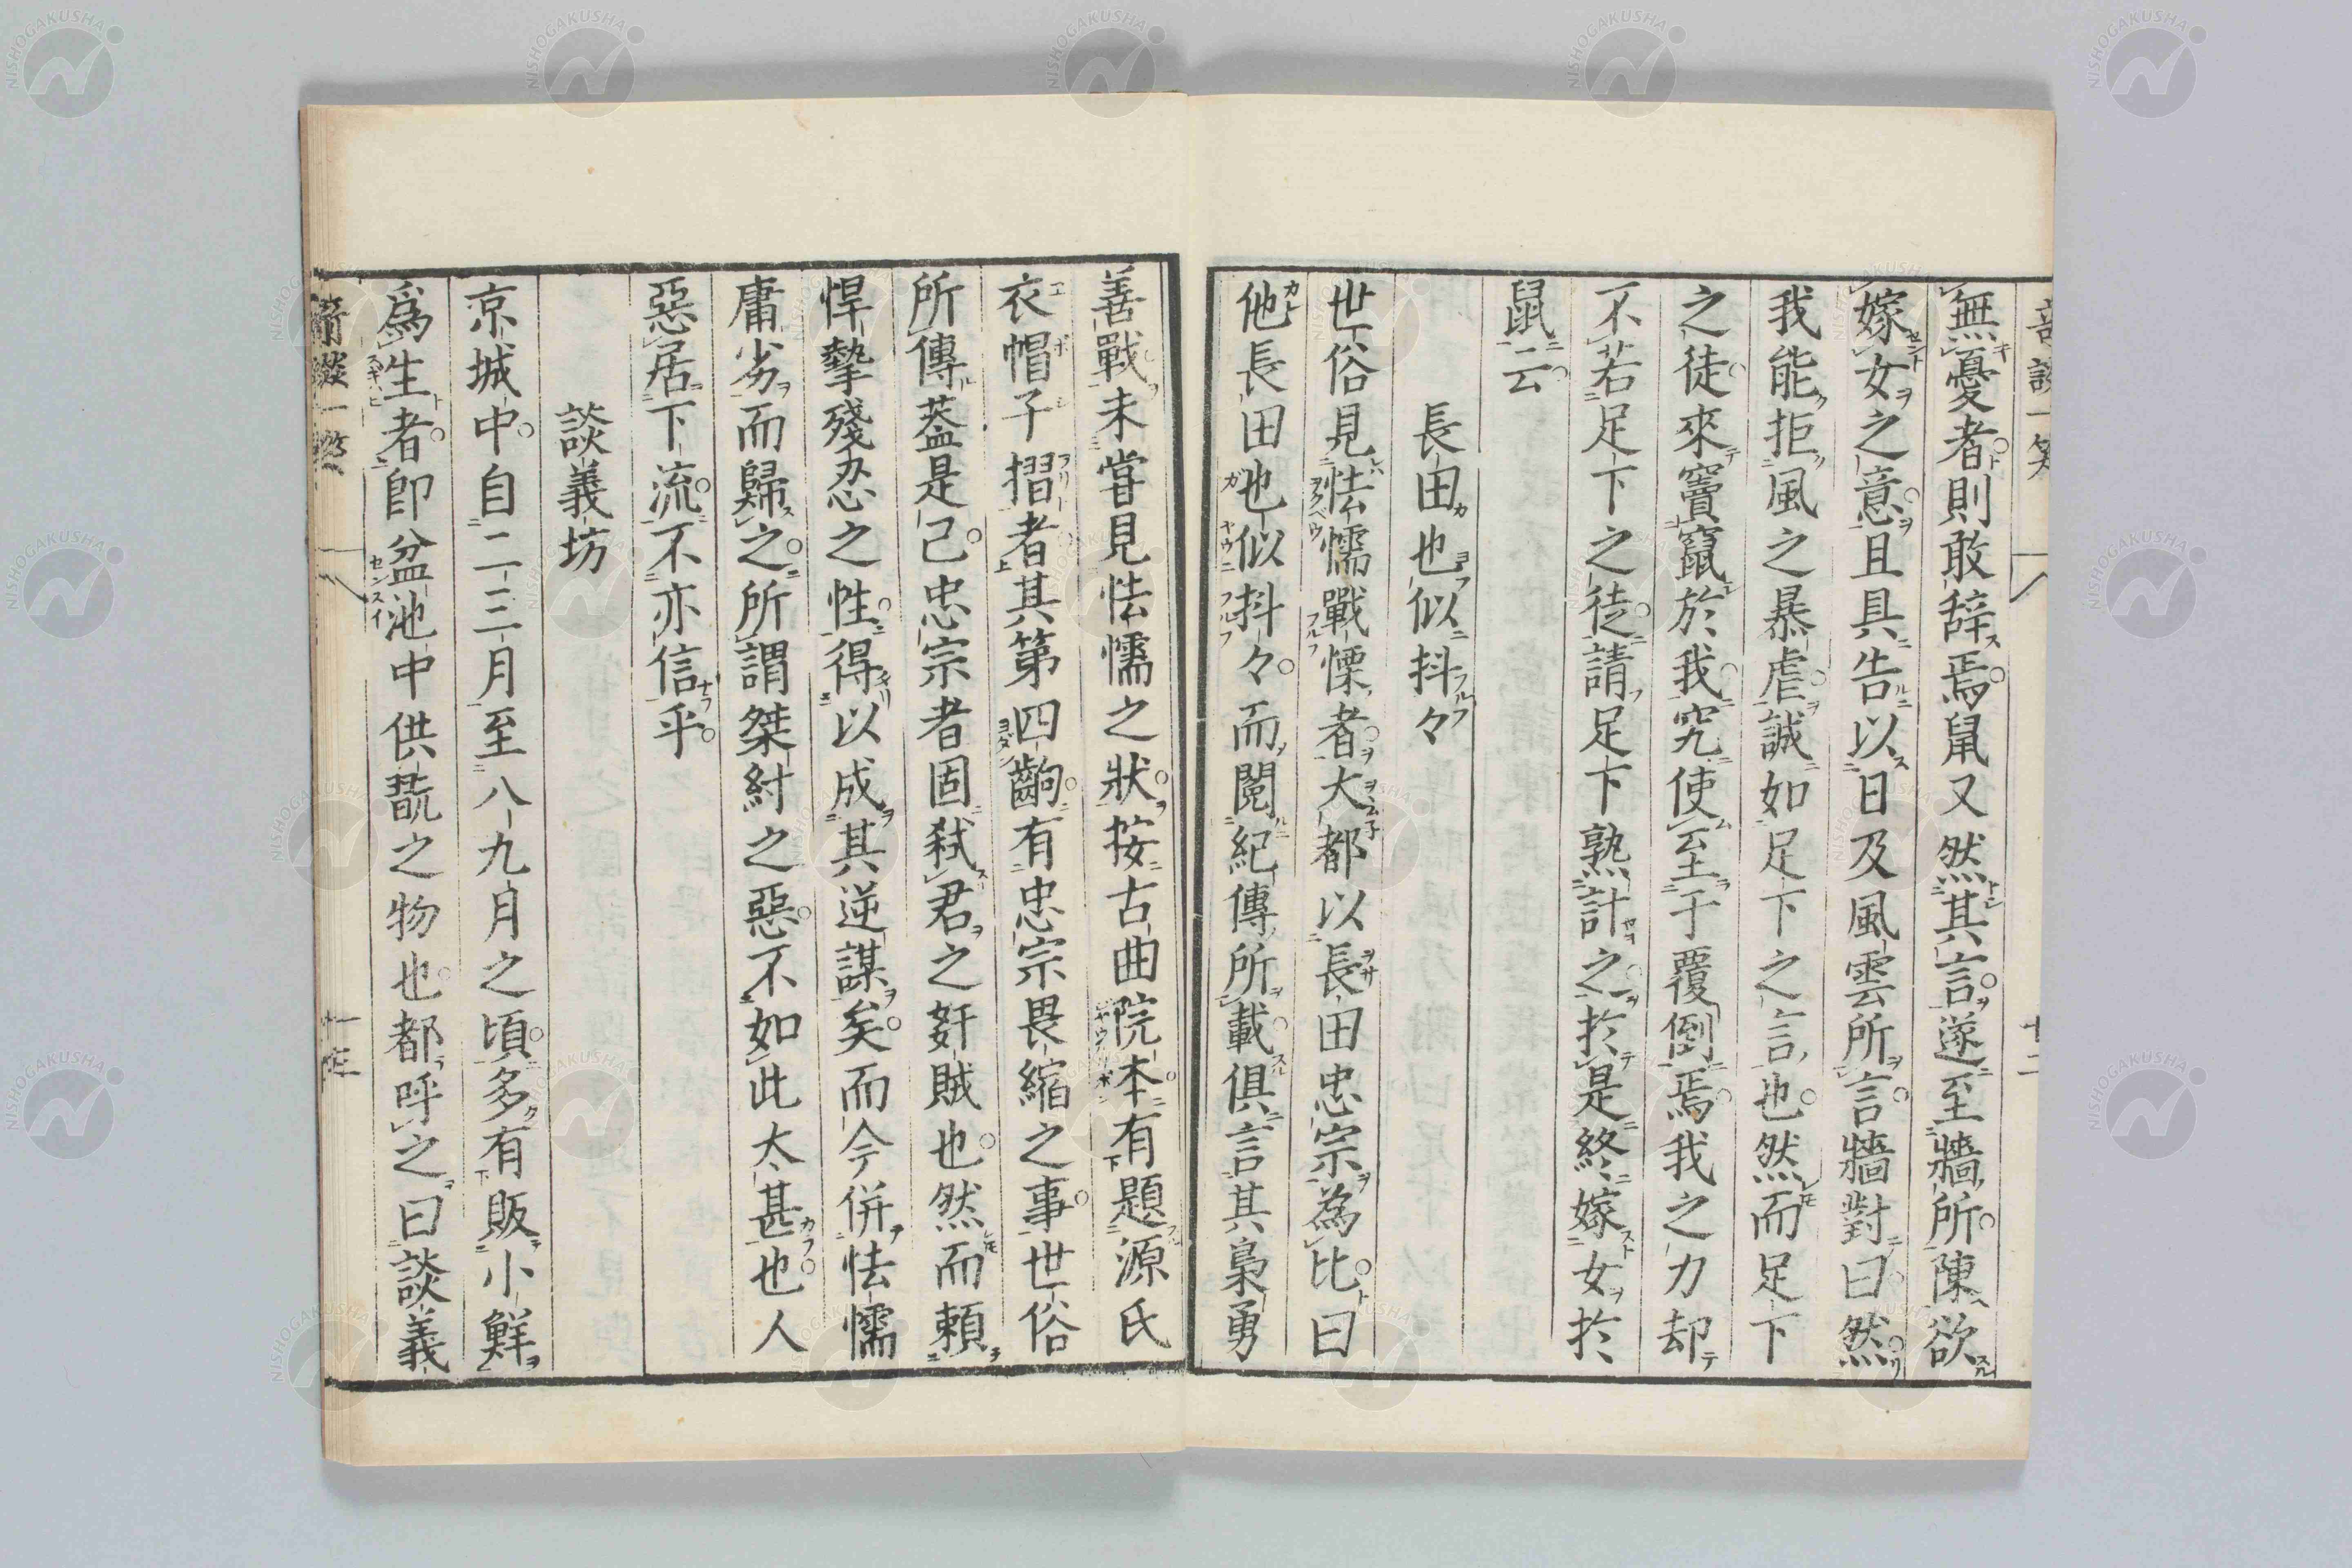 無憂者則敢辞焉鼠又然其言遂至牆所陳欲
嫁女之意且具告以日及風雲所言牆對曰然
我能拒風之暴虐誠如足下之言也然而足下
之徒來竇竄於我究使至于覆倒焉我之力却
不若足下之徒請足下熟計之於是終嫁女於
鼠云
長田也似抖々
世俗見怯懦戰慄者大都以長田忠宗為比曰
他長田也似抖々而閲紀傳所載倶言其梟勇
善戰未嘗見怯懦之狀按古曲院本有題源氏
衣帽子摺者其第四齣有忠宗畏縮之事世俗
所傳葢是已忠宗者固弑君之奸賊也然而頼
悍摯殘忍之性得以成其逆謀矣而今併怯懦
庸劣而歸之所謂桀紂之惡不如此太甚也人
惡居下流不亦信乎
談義坊
京城中自二三月至八九月之頃多有販小鮮
爲生者即盆池中供翫之物也都呼之曰談義